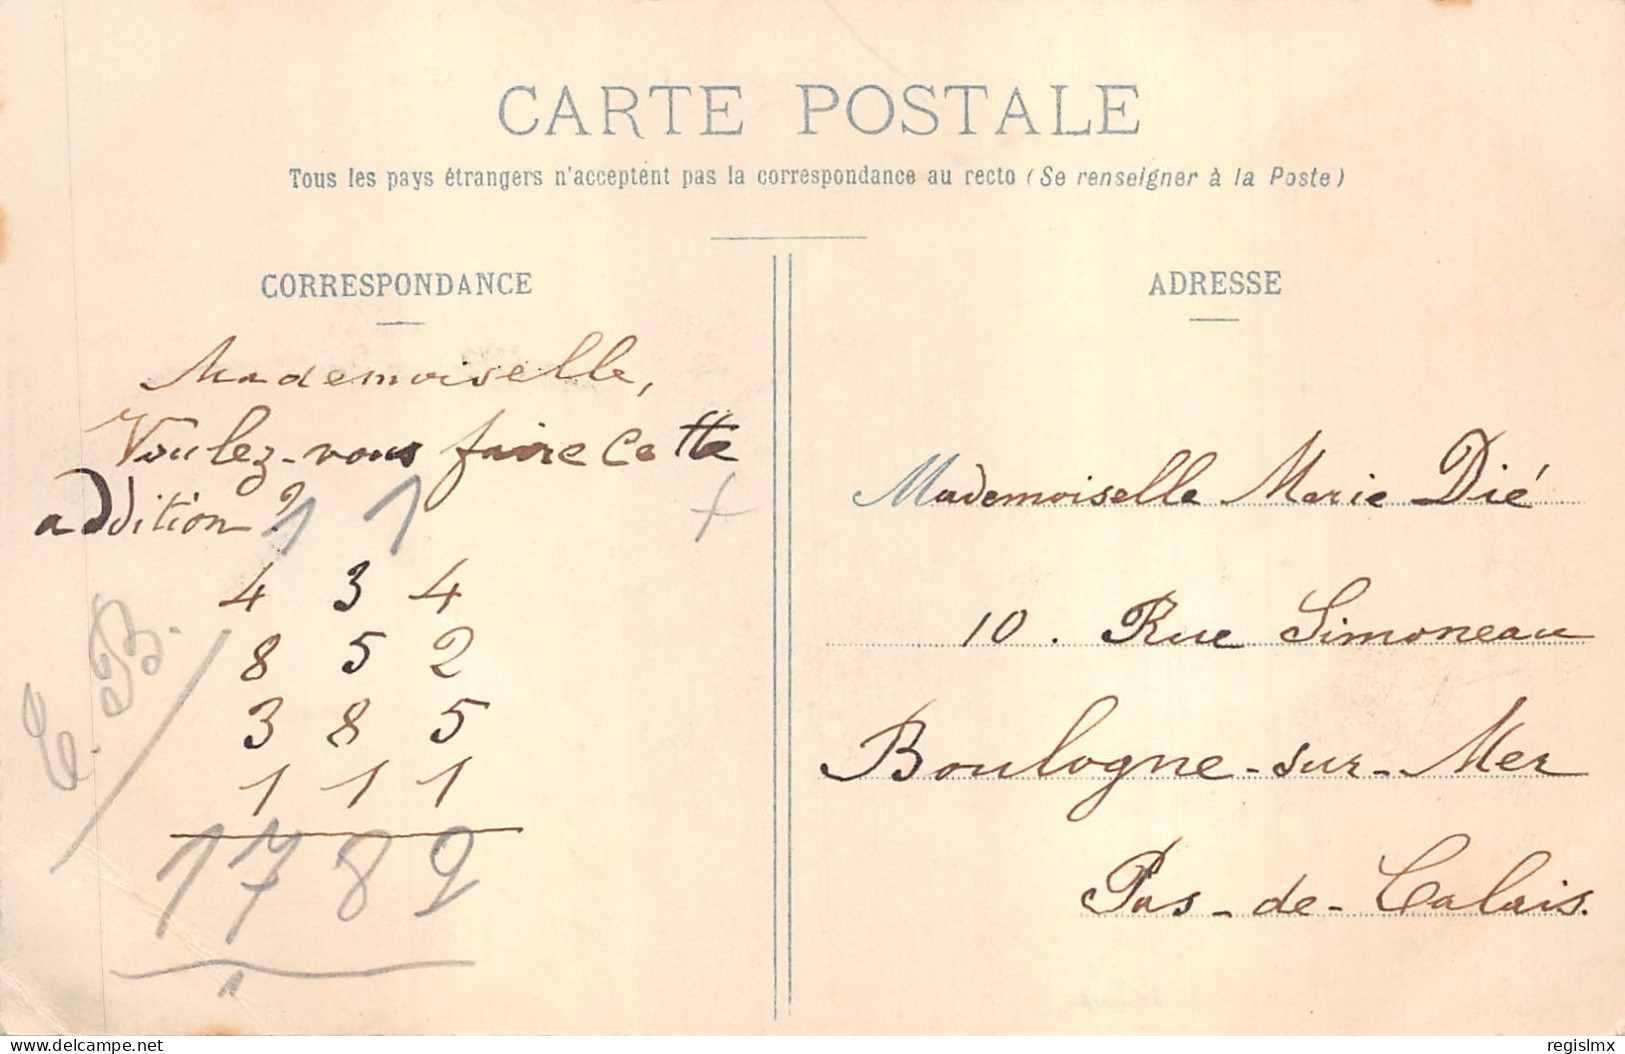 CARTE POSTALE
Tous les pays étrangers n'acceptent pas la correspondance au recto (Se renseigner à la Poste)
CORRESPONDANCE
Mademoiselle,
Voulez-vous faire cette
addition?
1 1
+
4 3 4
8 5 2
3 8 5
1 1 1
1782
E. B.
ADRESSE
Mademoiselle Marie Dié
10. Rue Simoneau
Boulogne-sur-Mer
Pas-de-Calais.
www.delcampe.net
regislmx